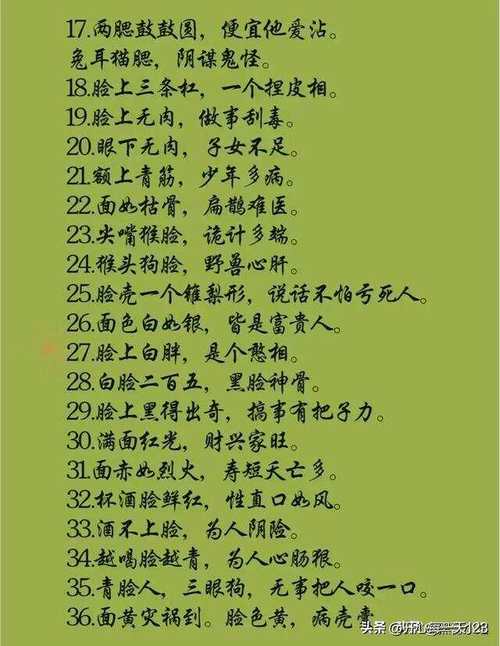 17.两腮鼓鼓圆，便宜他爱沾。
兔耳猫腮，阴谋鬼怪。
18.脸上三条杠，一个捏皮相。
19.脸上无肉，做事刮毒。
20.眼下无肉，子女不足。
21.额上青筋，少年多病。
22.面如枯骨，扁鹊难医。
23.尖嘴猴脸，诡计多端。
24.猴头狗脸，野兽心肝。
25.脸壳一个锥梨形，说话不怕亏死人。
26.面色白如银，皆是富贵人。
27.脸上白胖，是个憨相。
28.白脸二百五，黑脸神骨。
29.脸上黑得出奇，搞事有把子力。
30.满面红光，财兴家旺。
31.面赤如烈火，寿短夭亡多。
32.杯酒脸鲜红，性直口如风。
33.酒不上脸，为人阴险。
34.越喝脸越青，为人心肠狠。
35.青脸人，三眼狗，无事把人咬一口。
36.面黄灾祸到。脸色黄，病壳囊
头条 @一天123